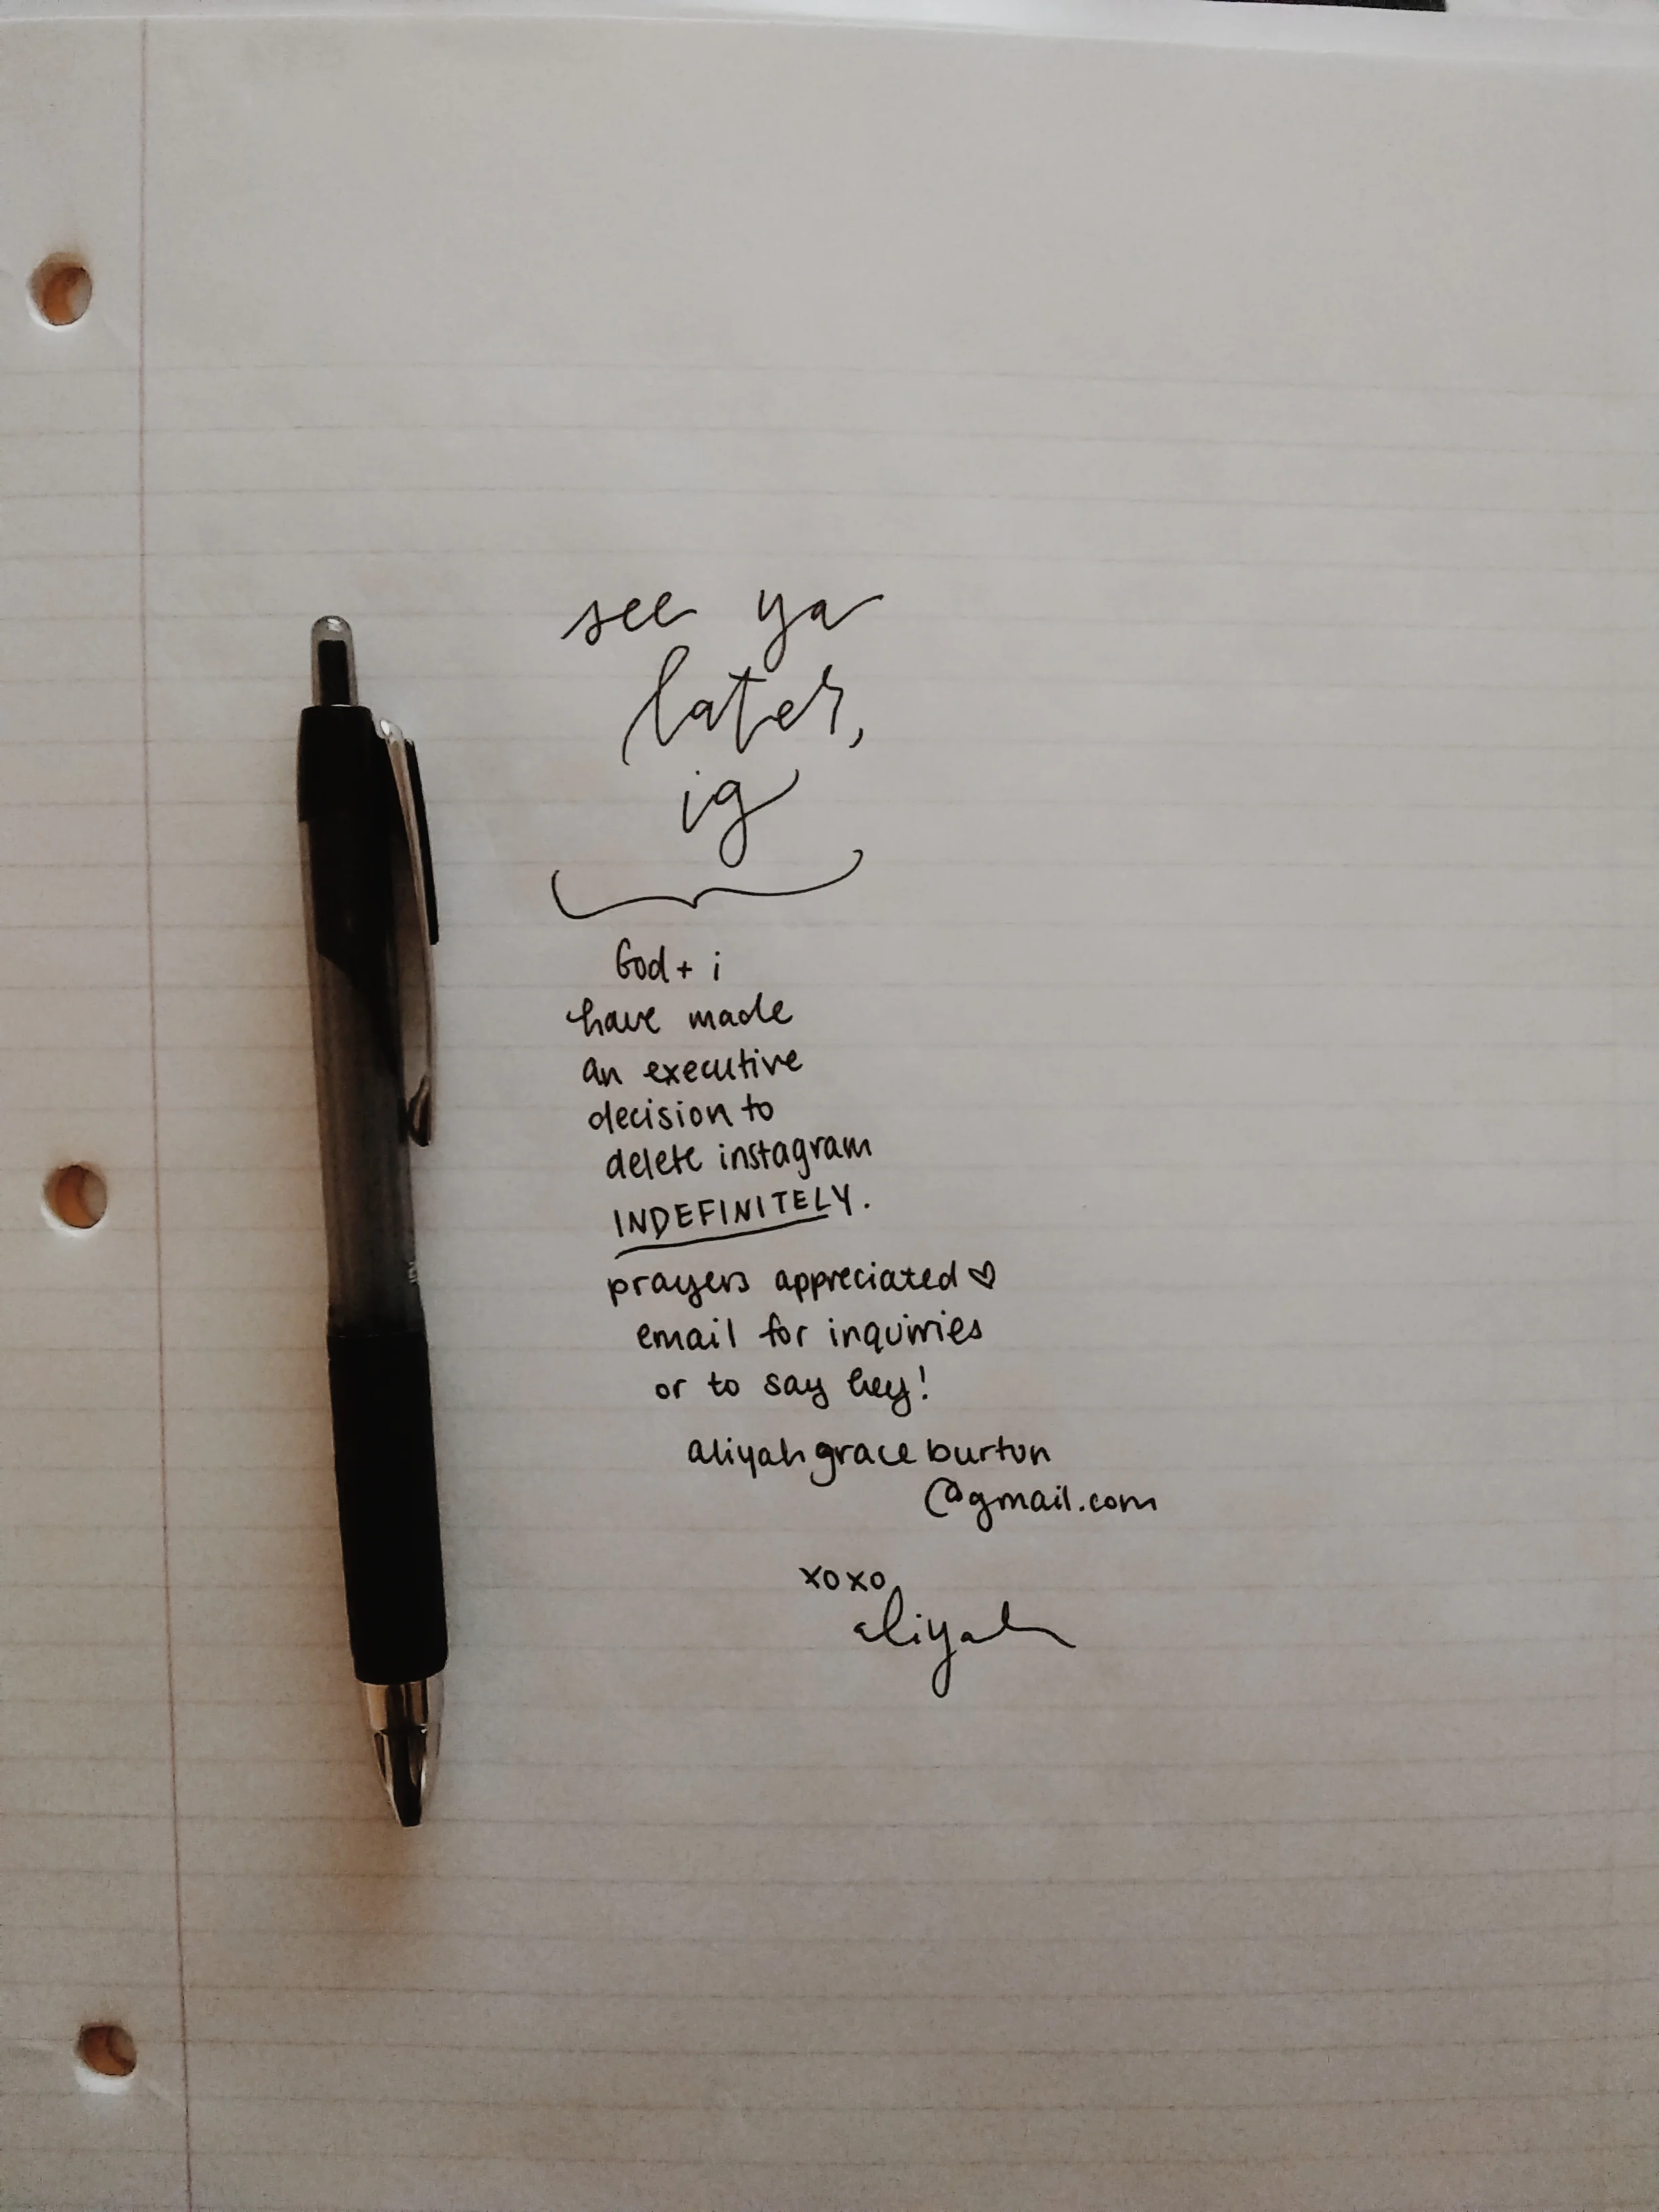 see ya
later,
ig
God + i
have made
an executive
decision to
delete instagram
INDEFINITELY.
prayers appreciated ♡
email for inquiries
or to say hey!
aliyahgraceburton
@gmail.com
xoxo,
aliyah